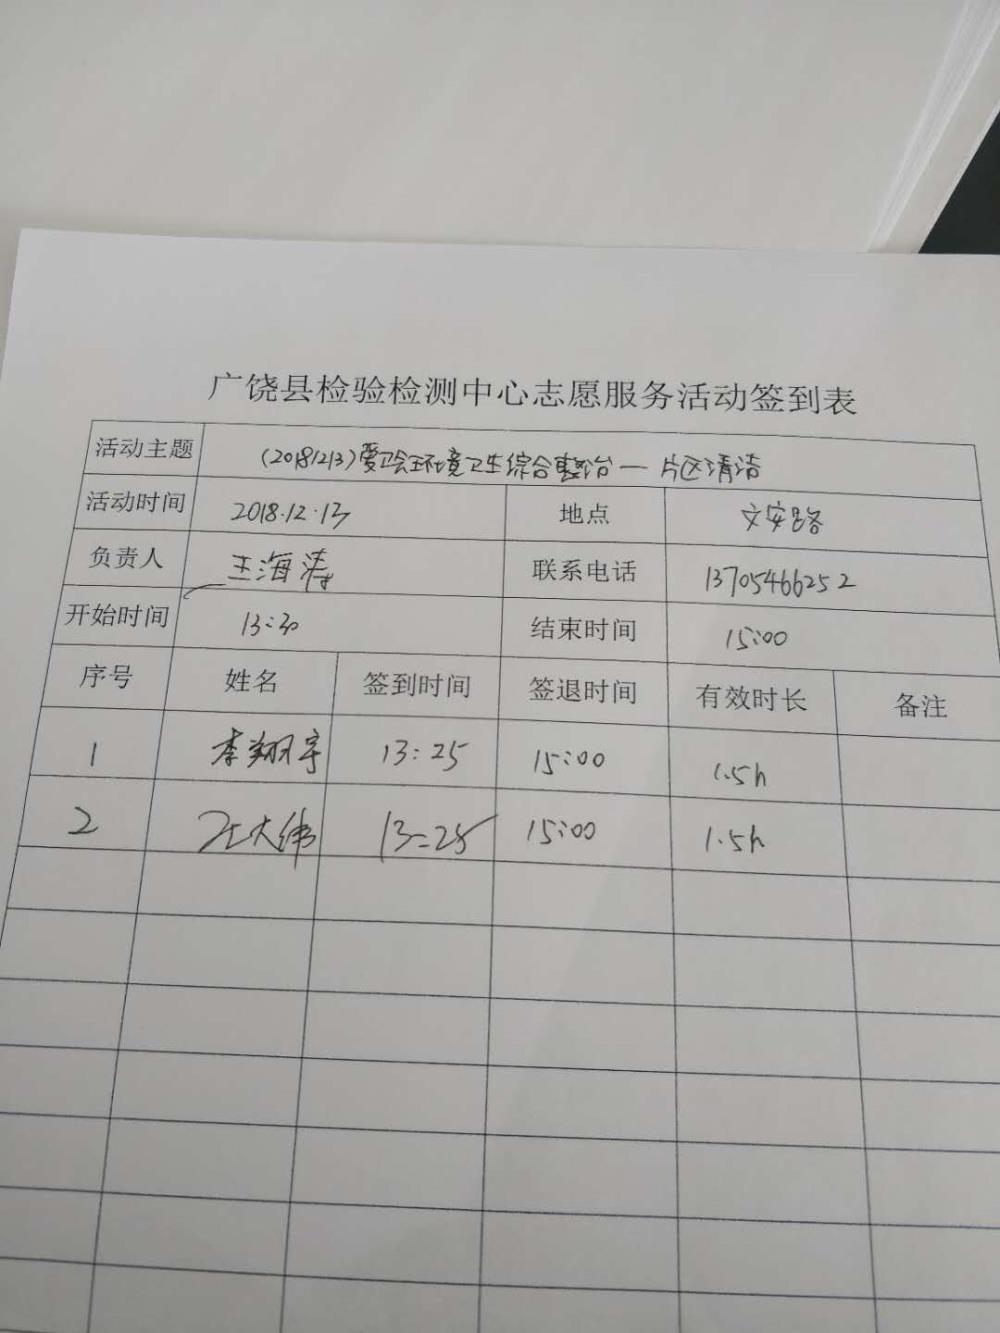 广饶县检验检测中心志愿服务活动签到表
活动主题 (20181213)爱卫会环境卫生综合整治一片区清洁
活动时间 2018.12.13 地点 文安路
负责人 王海涛 联系电话 13705466252
开始时间 13:30 结束时间 15:00
序号 姓名 签到时间 签退时间 有效时长 备注
1 李翔宇 13:25 15:00 1.5h
2 大伟 13:25 15:00 1.5h